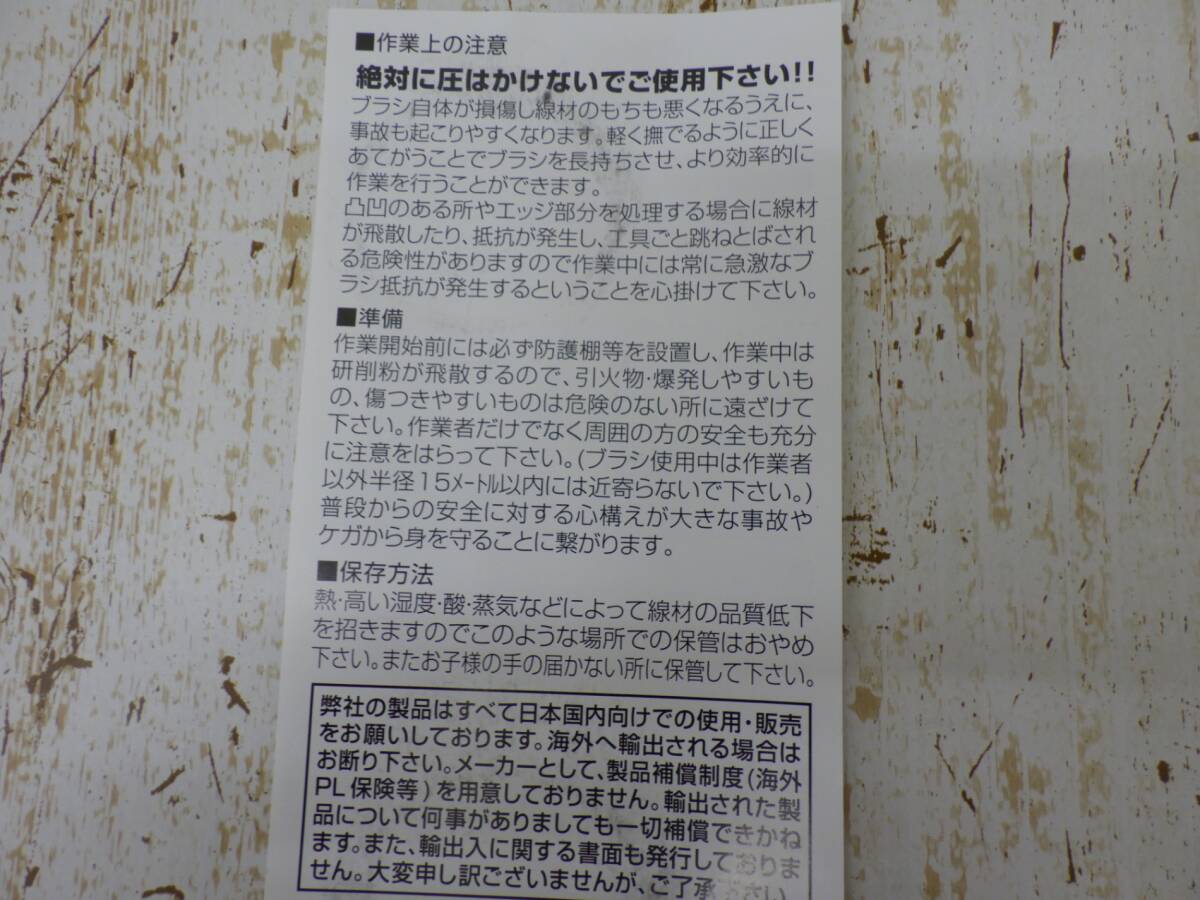 ■作業上の注意
絶対に圧はかけないでご使用下さい!!
ブラシ自体が損傷し線材のもちも悪くなるうえに、
事故も起こりやすくなります。軽く撫でるように正しく
あてがうことでブラシを長持ちさせ、より効率的に
作業を行うことができます。
凸凹のある所やエッジ部分を処理する場合に線材
が飛散したり、抵抗が発生し、工具ごと跳ねとばされ
る危険性がありますので作業中には常に急激なブ
ラシ抵抗が発生するということを心掛けて下さい。
■準備
作業開始前には必ず防護棚等を設置し、作業中は
研削粉が飛散するので、引火物・爆発しやすいも
の、傷つきやすいものは危険のない所に遠ざけて
下さい。作業者だけでなく周囲の方の安全も充分
に注意をはらって下さい。(ブラシ使用中は作業者
以外半径15メートル以内には近寄らないで下さい。)
普段からの安全に対する心構えが大きな事故や
ケガから身を守ることに繋がります。
■保存方法
熱・高い湿度・酸・蒸気などによって線材の品質低下
を招きますのでこのような場所での保管はおやめ
下さい。またお子様の手の届かない所に保管して下さい。
弊社の製品はすべて日本国内向けでの使用・販売
をお願いしております。海外へ輸出される場合は
お断り下さい。メーカーとして、製品補償制度(海外
PL保険等)を用意しておりません。輸出された製
品について何事がありましても一切補償できかね
ます。また、輸出入に関する書面も発行しておりま
せん。大変申し訳ございませんが、ご了承下さい